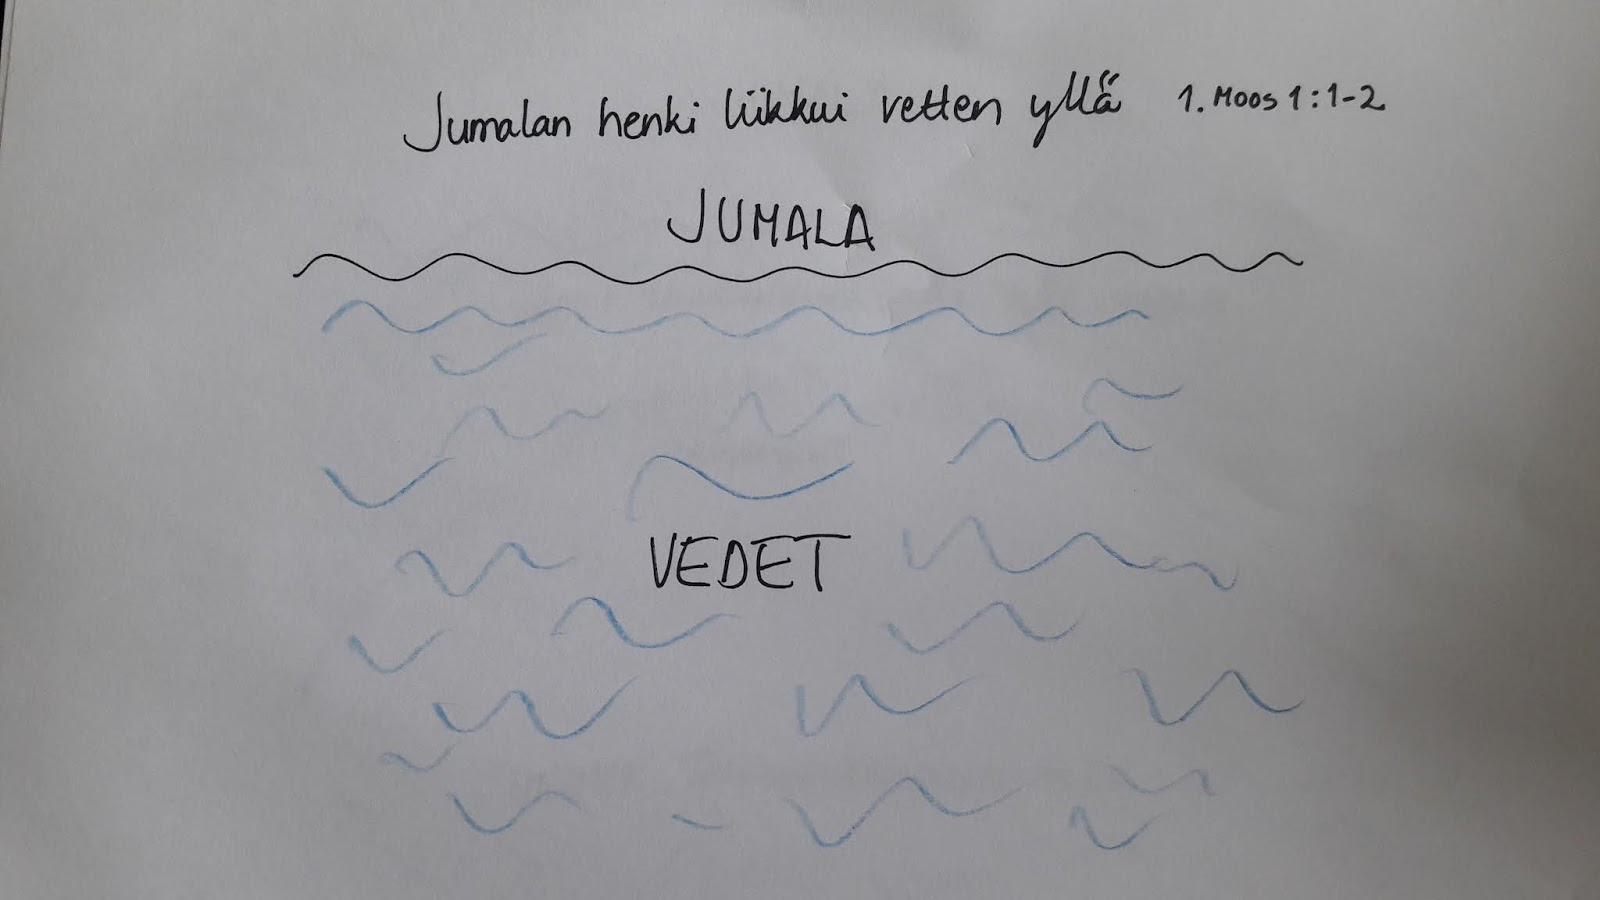 Jumalan henki liikkui vetten yllä 1. Moos 1:1-2
JUMALA
VEDET